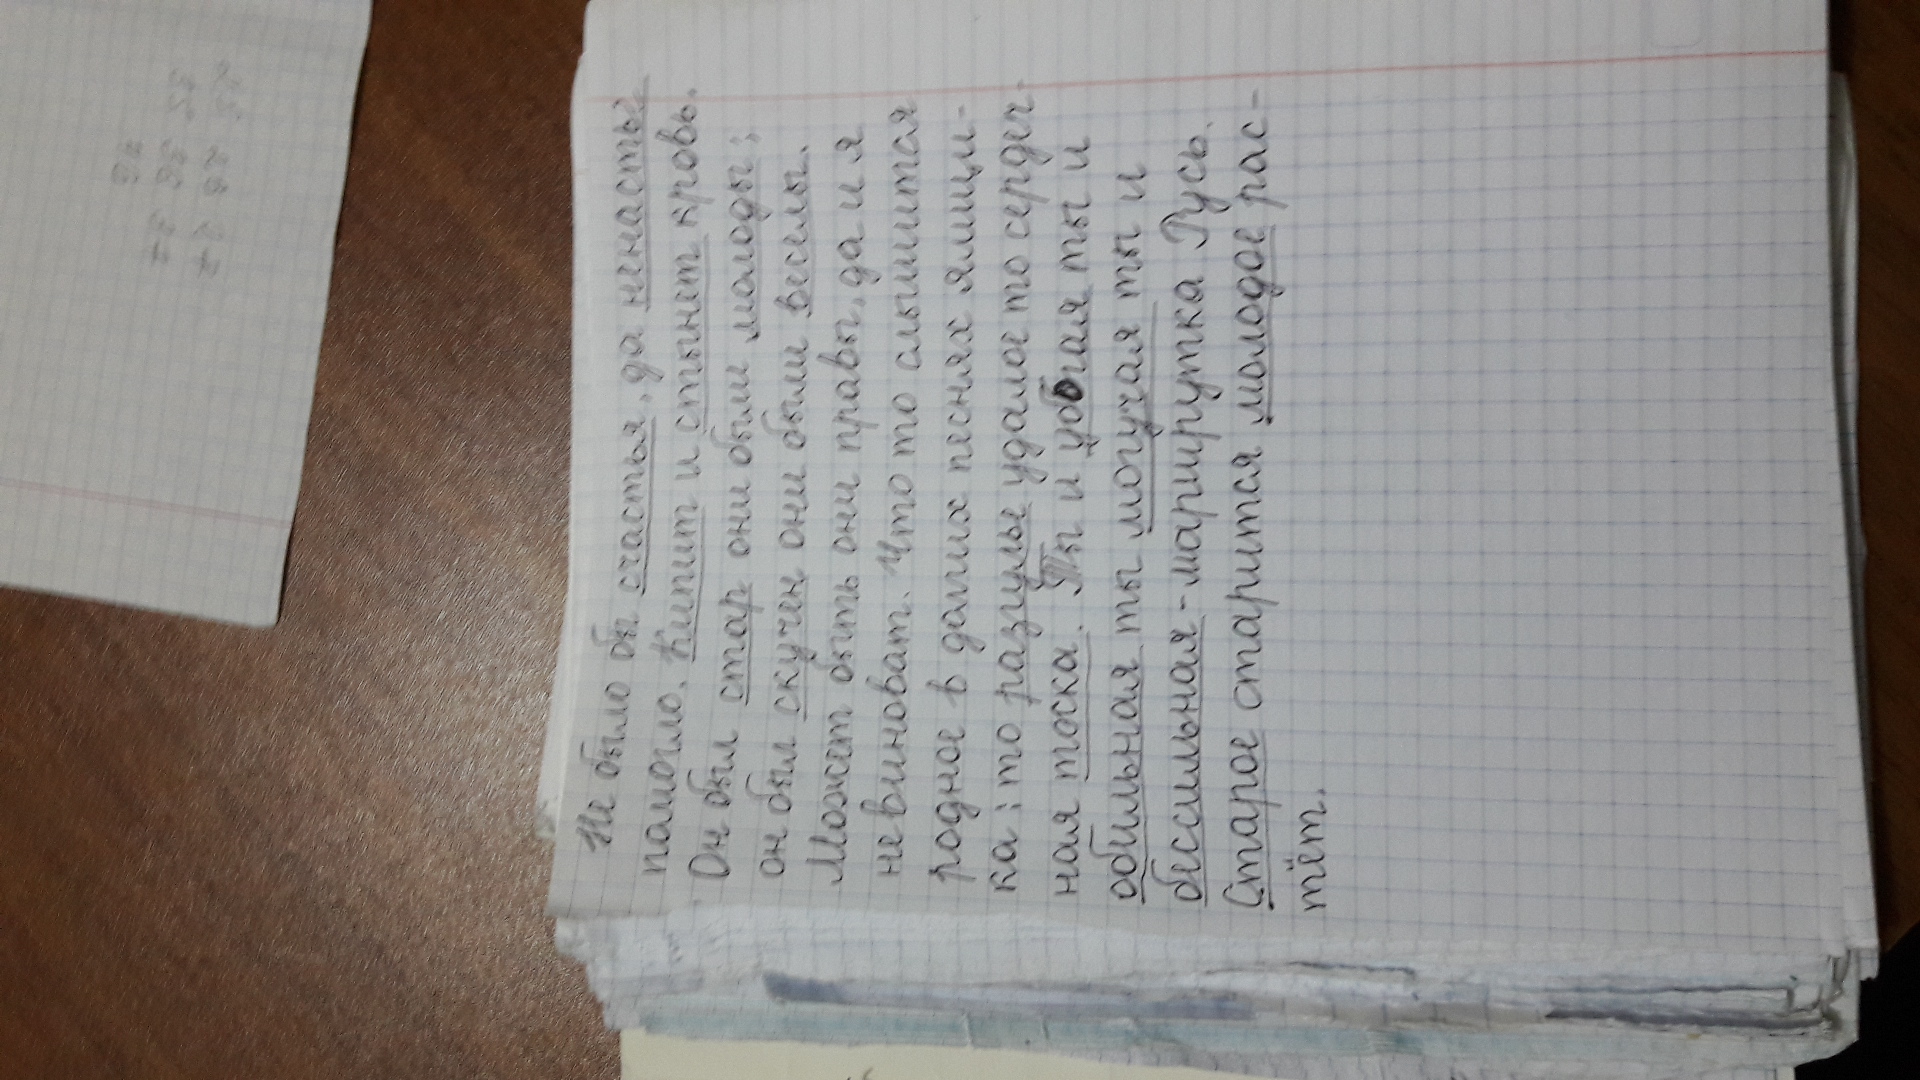 Не было бы счастья, да ненастье
помогло. Кипит и стынет кровь.
Он был стар они были молоды;
он был скучен они были веселы.
Может быть они правы, да и я
не виноват. Что то слышится
родное в долгих песнях ямщи-
ка: то разгулье удалое то сердеч-
ная тоска. Ты и убогая ты и
обильная ты могучая ты и
бессильная - маршрутка Русь.
Старое старится молодое рас-
тёт.